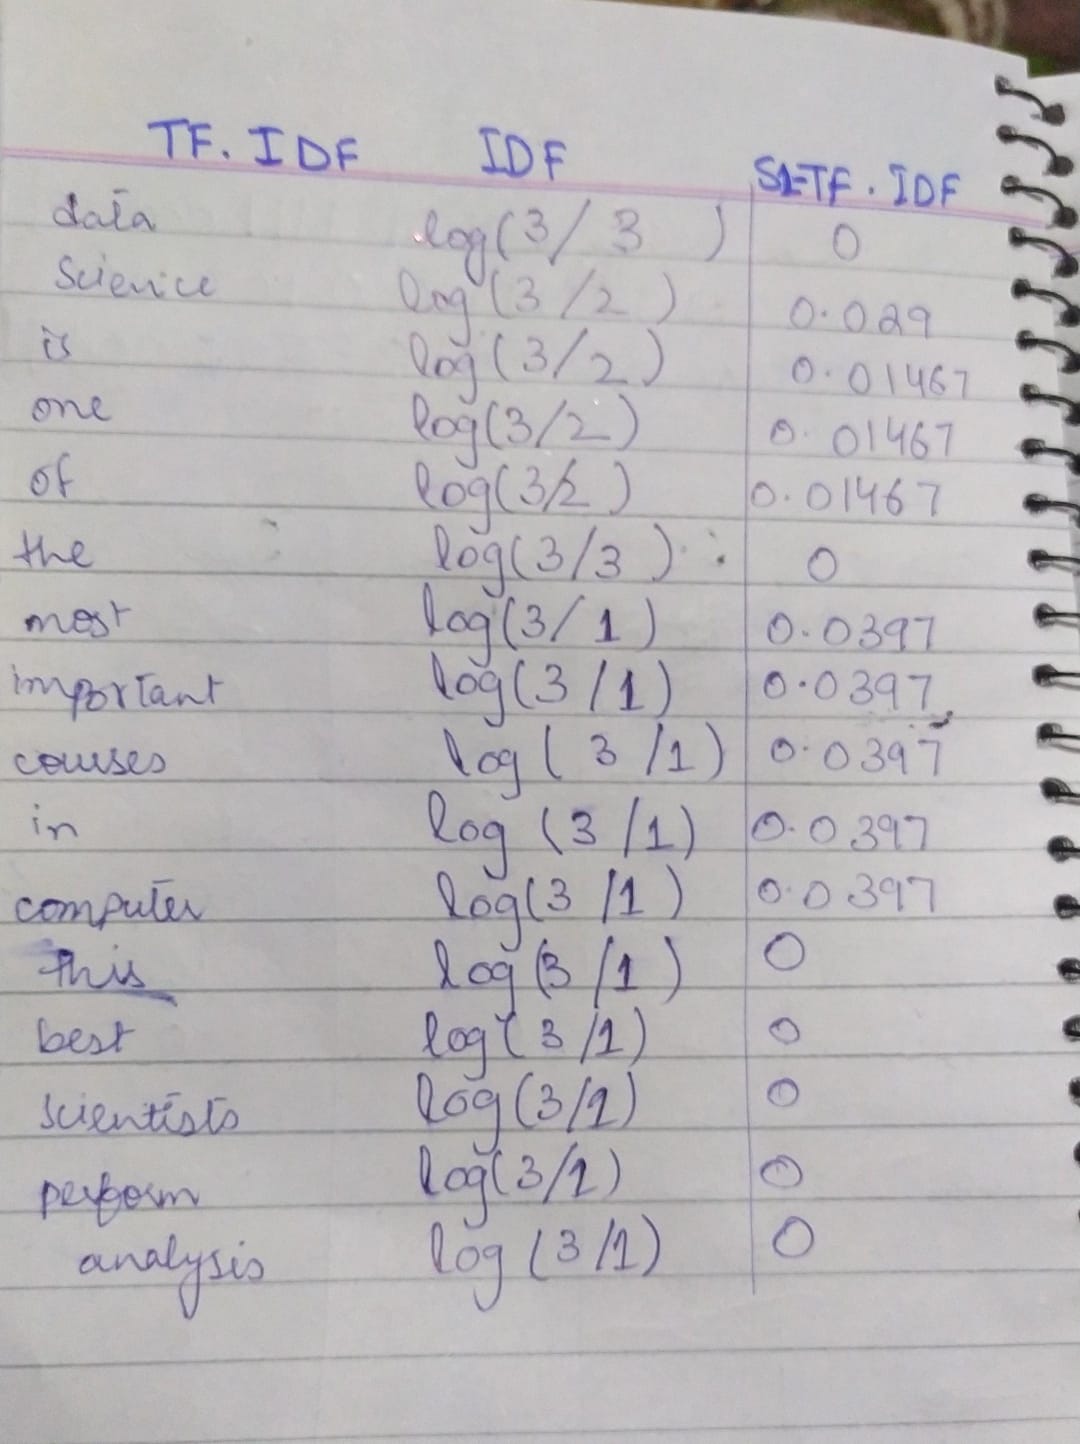 TF. IDF IDF S1-TF. IDF
data log(3/3) 0
Science log(3/2) 0.029
is log(3/2) 0.01467
one log(3/2) 0.01467
of log(3/2) 0.01467
the log(3/3) 0
most log(3/1) 0.0397
important log(3/1) 0.0397
courses log(3/1) 0.0397
in log(3/1) 0.0397
computer log(3/1) 0.0397
this log(3/1) 0
best log(3/1) 0
scientists log(3/1) 0
perform log(3/1) 0
analysis log(3/1) 0